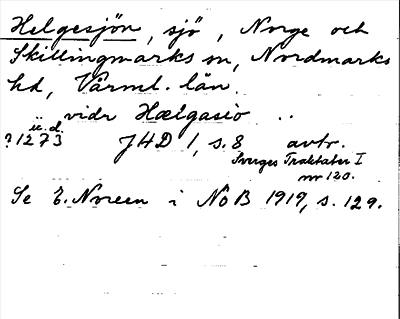 Helgesjön, sjö, Norge och
Skillingmarks sn, Nordmarks
hd, Värml. län.
vidr Hælgasio ..
u. d.
? 1273 JHD 1, s. 8 avtr.
Sveriges Traktater I
nr 120.
Se E. Noreen i NoB 1919, s. 129.